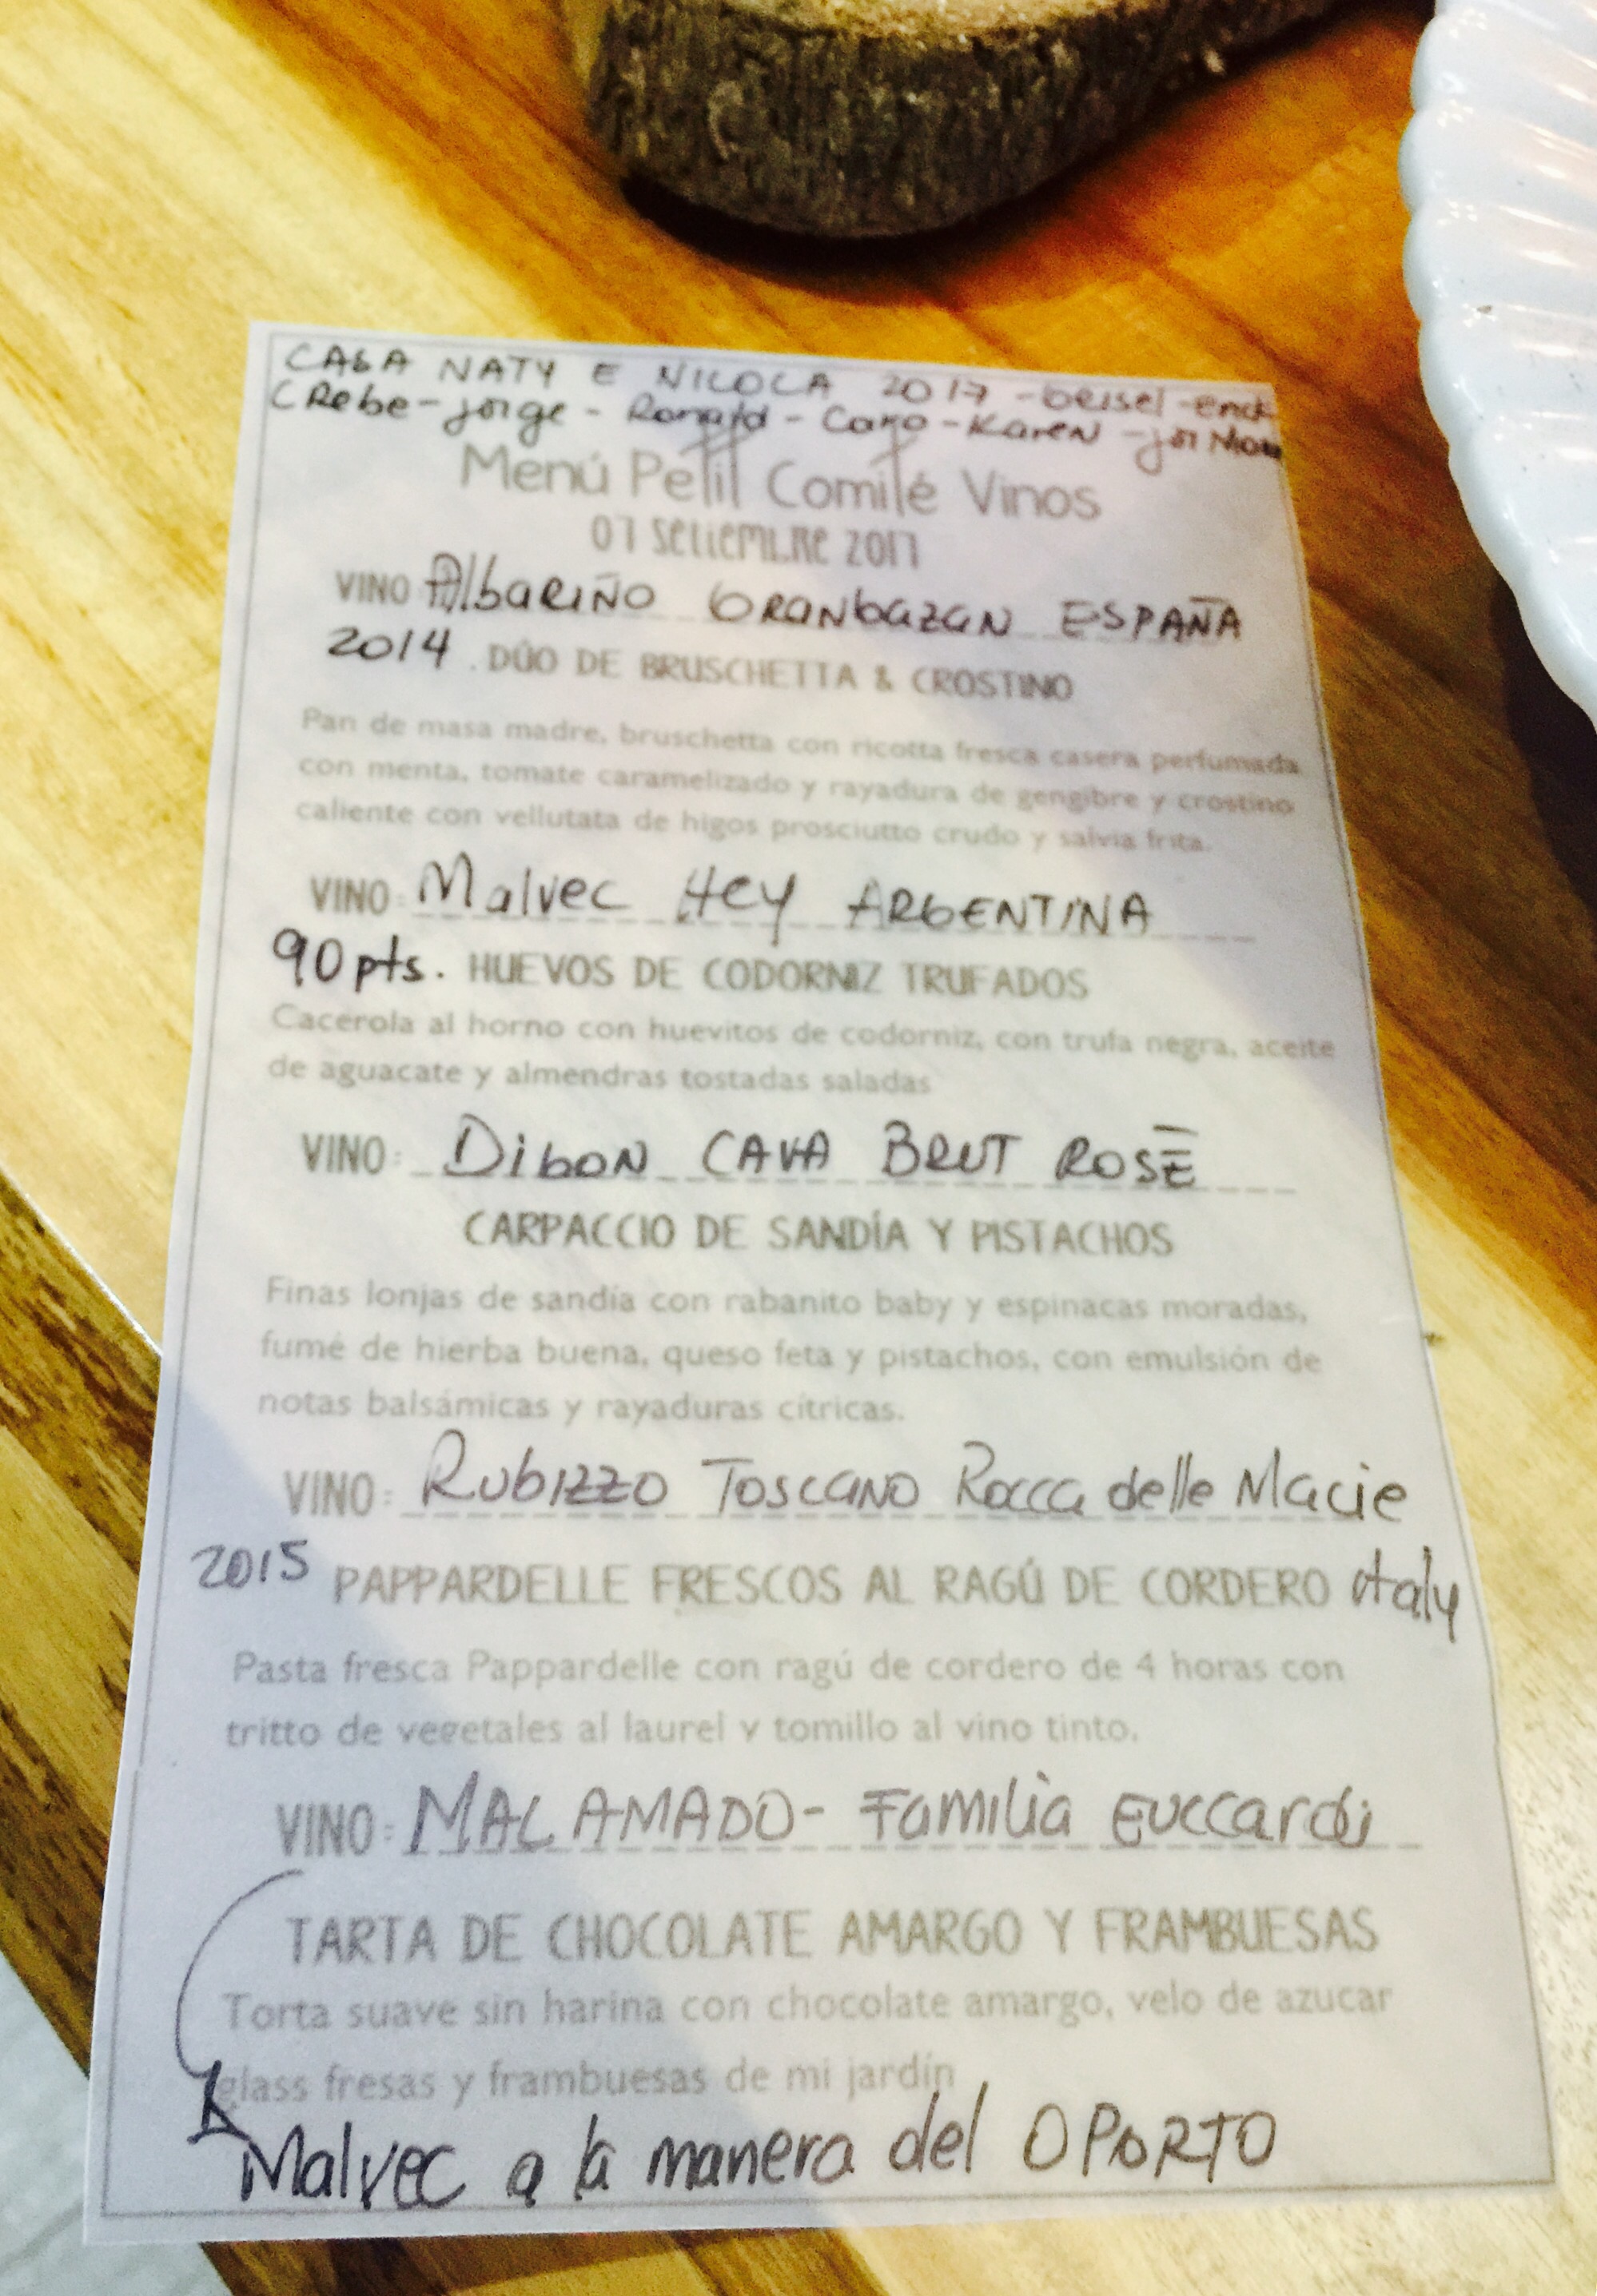 CASA NATY E NICOLA 2017 - Geisel - Erick
(Rebe - Jorge - Ronald - Caro - Karen -
Menú Petit Comité Vinos
07 SETIEMBRE 2017
VINO Albariño Granbazan ESPAÑA
2014. DÚO DE BRUSCHETTA & CROSTINO
Pan de masa madre, bruschetta con ricotta fresca casera perfumada
con menta, tomate caramelizado y rayadura de gengibre y crostino
caliente con vellutata de higos prosciutto crudo y salvia frita.
VINO: Malvec Hey ARGENTINA
90 pts. HUEVOS DE CODORNIZ TRUFADOS
Cacerola al horno con huevitos de codorniz, con trufa negra, aceite
de aguacate y almendras tostadas saladas
VINO: Dibon CAVA BRUT ROSÉ
CARPACCIO DE SANDÍA Y PISTACHOS
Finas lonjas de sandía con rabanito baby y espinacas moradas,
fumé de hierba buena, queso feta y pistachos, con emulsión de
notas balsámicas y rayaduras cítricas.
VINO: Rubizzo Toscano Rocca delle Macie
2015 PAPPARDELLE FRESCOS AL RAGÚ DE CORDERO Italy
Pasta fresca Pappardelle con ragú de cordero de 4 horas con
tritto de vegetales al laurel y tomillo al vino tinto.
VINO: MALAMADO - Familia Zuccardi
TARTA DE CHOCOLATE AMARGO Y FRAMBUESAS
Torta suave sin harina con chocolate amargo, velo de azucar
glass fresas y frambuesas de mi jardín
Malvec a la manera del OPORTO